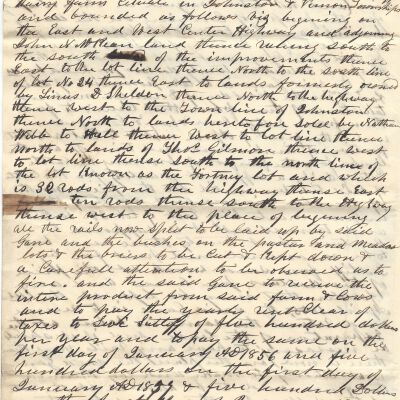 being farm situate in Johnston & Vernon townships
and bounded as follows viz begining on
the East and West Center Highway and adjoining
John N. McKean land thense runing south to
the south of the improvements thense
East to the lot line thense North to the south line
of lot No 24 thense East to lands formerly owned
by Linus D. Sheldon thense North to the highway
thense west to the Town line of Johnston
thense North to lands heretofore sold by Nathan
Webb to Hall thense west to lot line thense
North to lands of Thos Gilmon thense west
to lot line thense south to the north line of
the lot Known as the Gortney lot and which
is 32 rods from the highway thense East
ten rods thense south to the Highway
thense west to the place of begining
all the rails now split to be laid up by said
Gane and the bushes on the pasture and Meadow
lots & the briers to be Cut & Kept down &
a Carefull attention to be observed as to
fire. and the said Gane to receive the
intire product from said farm & Cows
and to pay the yearly rent Clear of
taxes to Levi Sutliff of five hundred dollars
per year and to pay the same on the
first day of January AD 1856 and five
hundred dollars on the first day of
January AD 1857 & five hundred Dollars